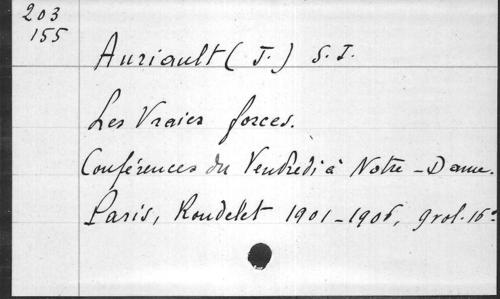 203
155
Auriault (J.) S.I.
Les Vraies forces.
Conférences du Vendredi à Notre-Dame.
Paris, Roudelet 1901-1906, gr 16°